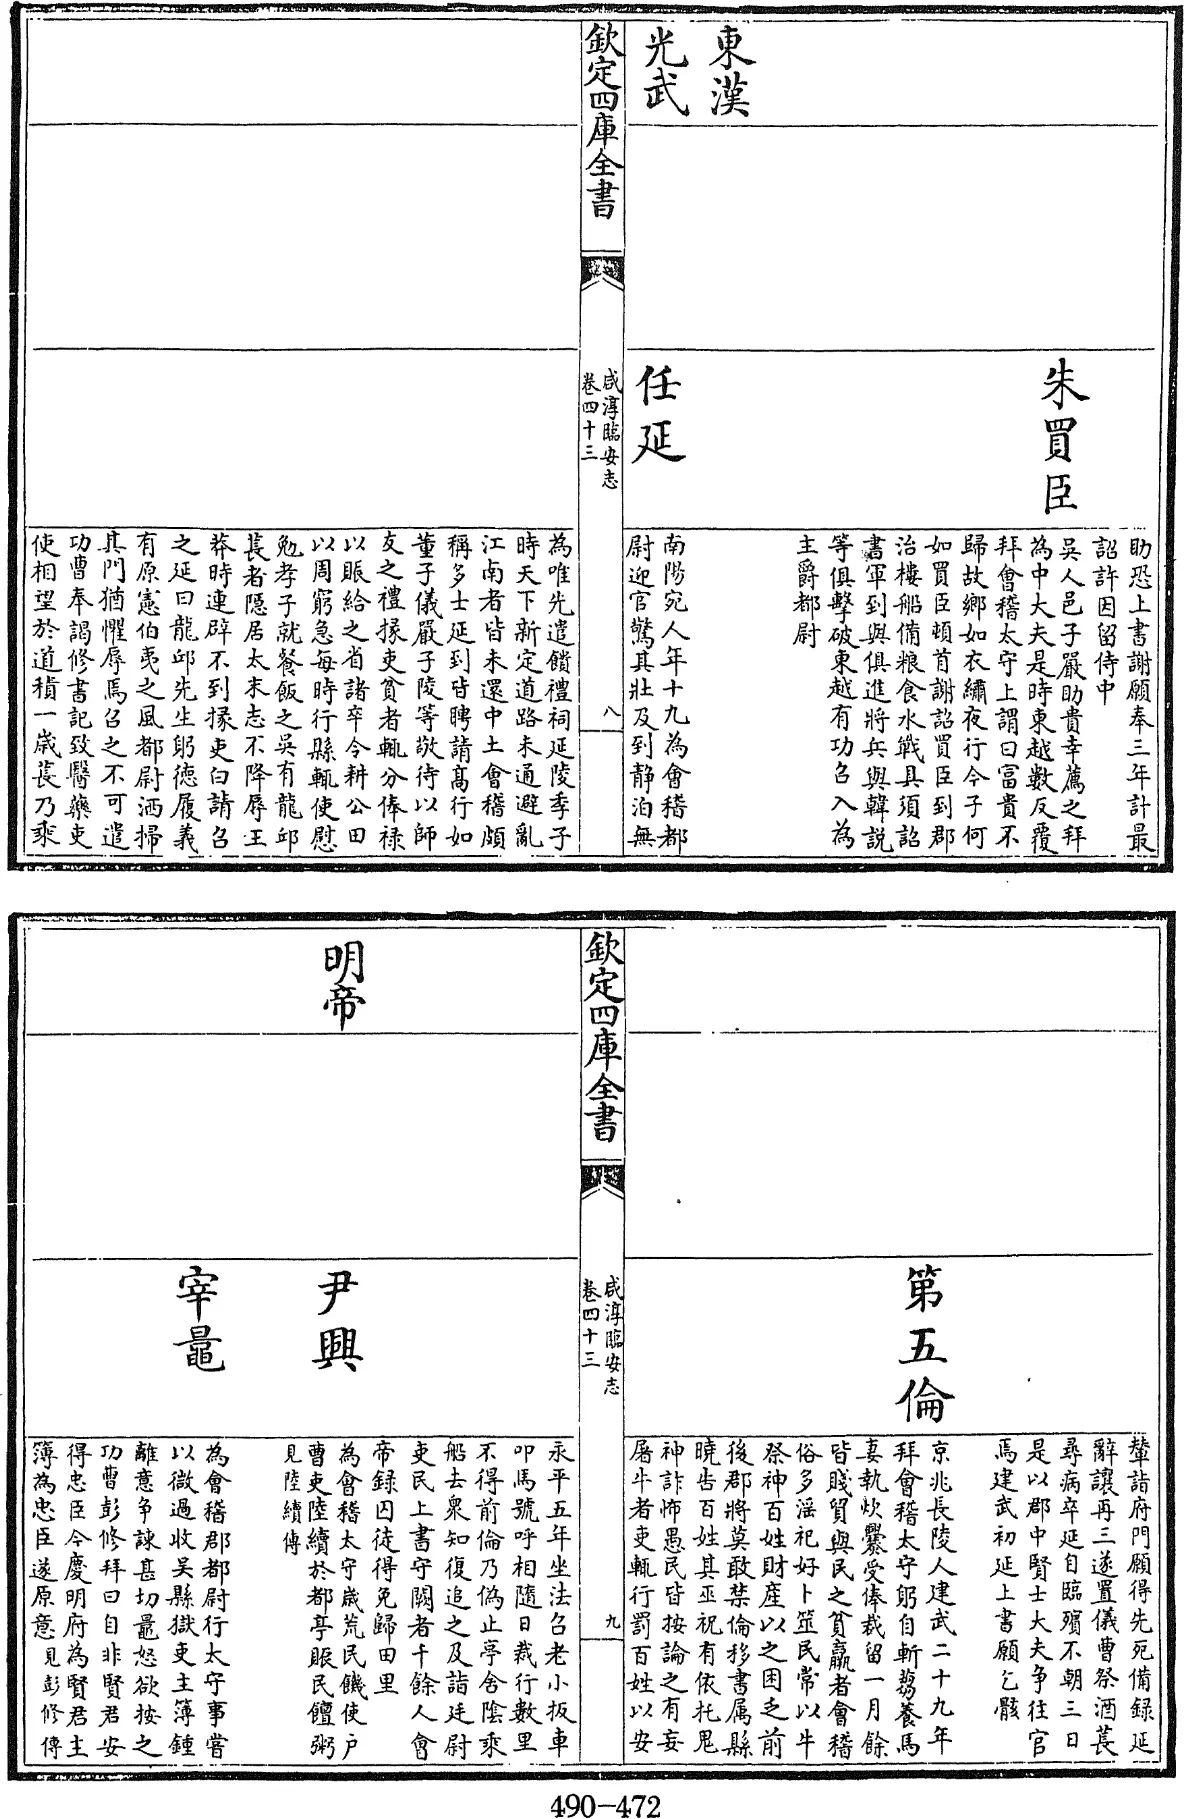 助恐上書謝願奉三年計最
詔許因留侍中
朱買臣
吳人邑子嚴助貴幸薦之拜
為中大夫是時東越數反覆
拜會稽太守上謂曰富貴不
歸故鄉如衣繡夜行今子何
如買臣頓首謝詔買臣到郡
治樓船備粮食水戰具須詔
書軍到與俱進將兵與韓説
等俱擊破東越有功召入為
主爵都尉
東漢
光武
任延
南陽宛人年十九為會稽都
尉迎官驚其壯及到静泊無
欽定四庫全書
咸淳臨安志
卷四十三
八
為唯先遣饋禮祠延陵季子
時天下新定道路未通避亂
江南者皆未還中土會稽頗
稱多士延到皆聘請髙行如
董子儀嚴子陵等敬待以師
友之禮掾吏貧者輒分俸禄
以賑給之省諸卒令耕公田
以周窮急每時行縣輒使慰
勉孝子就餐飯之吳有龍邱
萇者隱居太末志不降辱王
莽時連辟不到掾吏白請召
之延曰龍邱先生躬德履義
有原憲伯夷之風都尉洒掃
其門猶懼辱焉召之不可遣
功曹奉謁修書記致醫藥吏
使相望於道積一歲萇乃乘
輦詣府門願得先死備録延
辭讓再三遂署儀曹祭酒萇
尋病卒延自臨殯不朝三日
是以郡中賢士大夫争往官
焉建武初延上書願乞骸
第五倫
京兆長陵人建武二十九年
拜會稽太守躬自斬芻養馬
妻執炊爨受俸裁留一月餘
皆賤貿與民之貧羸者會稽
俗多淫祀好卜筮民常以牛
祭神百姓財産以之困乏前
後郡將莫敢禁倫移書属縣
曉告百姓其巫祝有依托鬼
神詐怖愚民皆按論之有妄
屠牛者吏輒行罰百姓以安
欽定四庫全書
咸淳臨安志
卷四十三
九
永平五年坐法召老小扳車
叩馬號呼相隨日裁行數里
不得前倫乃偽止亭舍陰乘
船去衆知復追之及詣廷尉
吏民上書守闕者千餘人會
帝録囚徒得免歸田里
明帝
尹興
為會稽太守歲荒民饑使户
曹吏陸續於都亭賑民饘粥
見陸續傳
宰鼂
為會稽郡都尉行太守事嘗
以微過收吴縣獄吏主簿鍾
離意争諫甚切鼂怒欲按之
功曹彭修拜曰自非賢君安
得忠臣今慶明府為賢君主
簿為忠臣遂原意見彭修傳
490-472